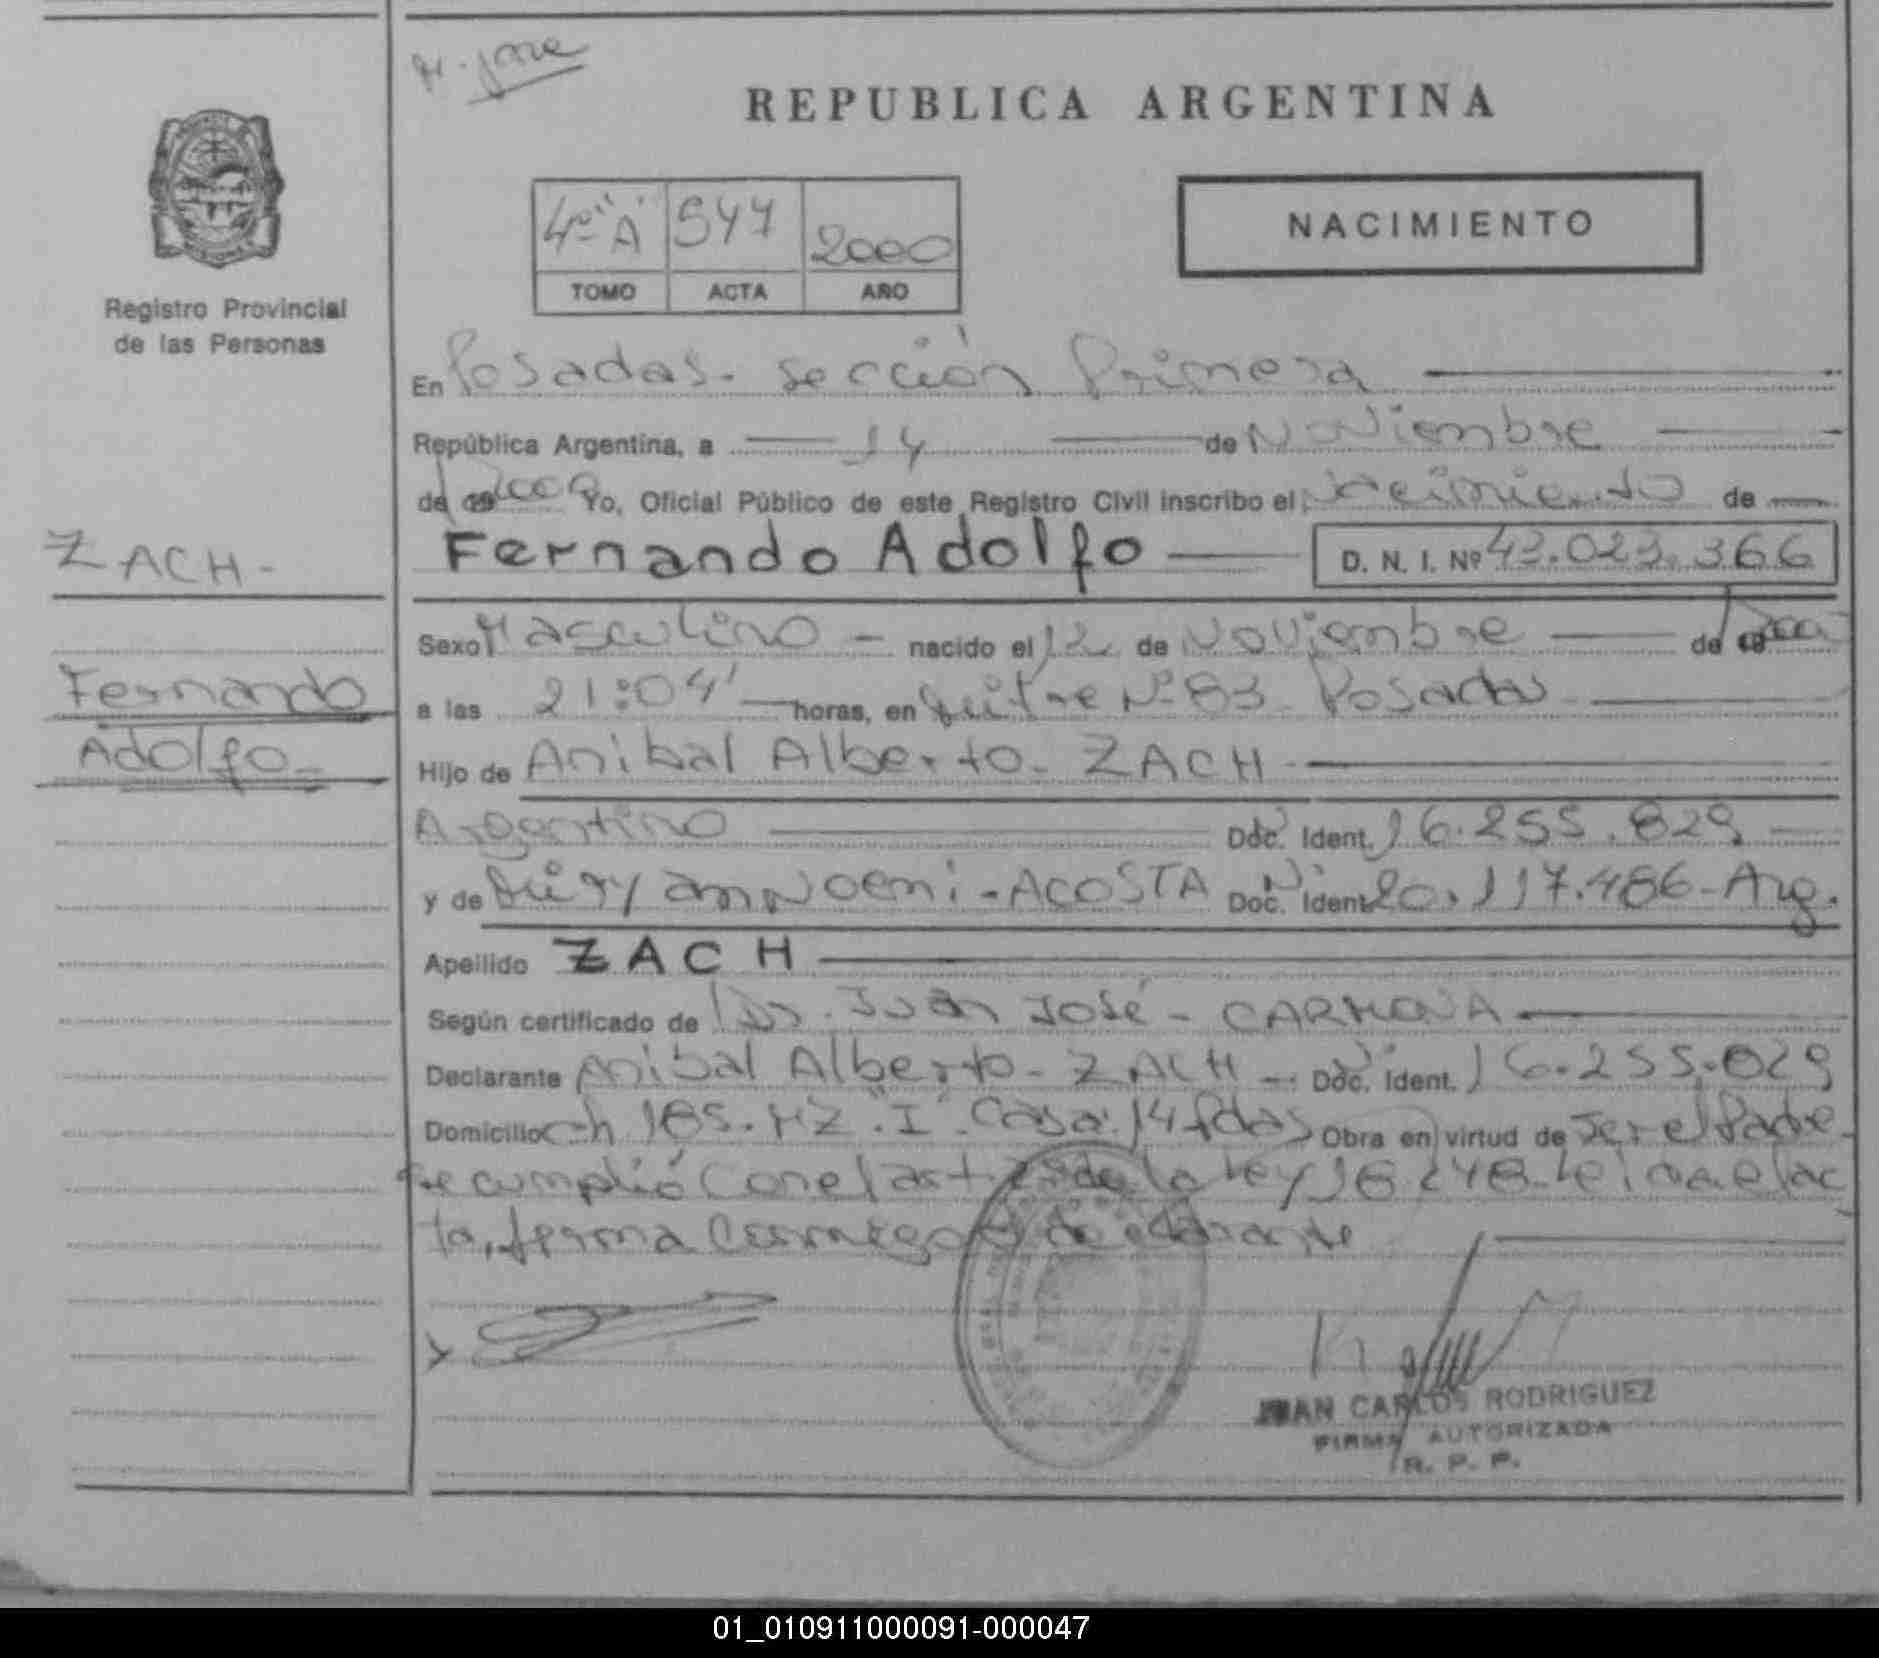 REPUBLICA ARGENTINA
NACIMIENTO
4º "A" 547 2000
TOMO ACTA AÑO
Registro Provincial
de las Personas
En Posadas. Sección Primera
República Argentina, a 14 de Noviembre
de 2000 Yo, Oficial Público de este Registro Civil inscribo el Nacimiento de
ZACH-
Fernando
Adolfo-
Fernando Adolfo D. N. I. Nº 43.023.366
Sexo Masculino - nacido el 12 de Noviembre de 2000
a las 21:04' horas, en Nº 83 Posadas
Hijo de Anibal Alberto - ZACH
Argentino Doc. Ident. 16.255.829
y de Noemi - ACOSTA Doc. Ident. 20.117.486 - Arg.
Apellido ZACH
Según certificado de Dr. Juan José - CARMONA
Declarante Anibal Alberto - ZACH - Doc. Ident. 16.255.829
Domicilio ch 185. MZ. "I". Casa: 14 Pdas Obra en virtud de ser el Padre.
Se cumplió con el art de la Ley 18248. Leida el ac
ta, firma conmigo el declarante
JUAN CARLOS RODRIGUEZ
FIRMA AUTORIZADA
R. P. P.
01_010911000091-000047